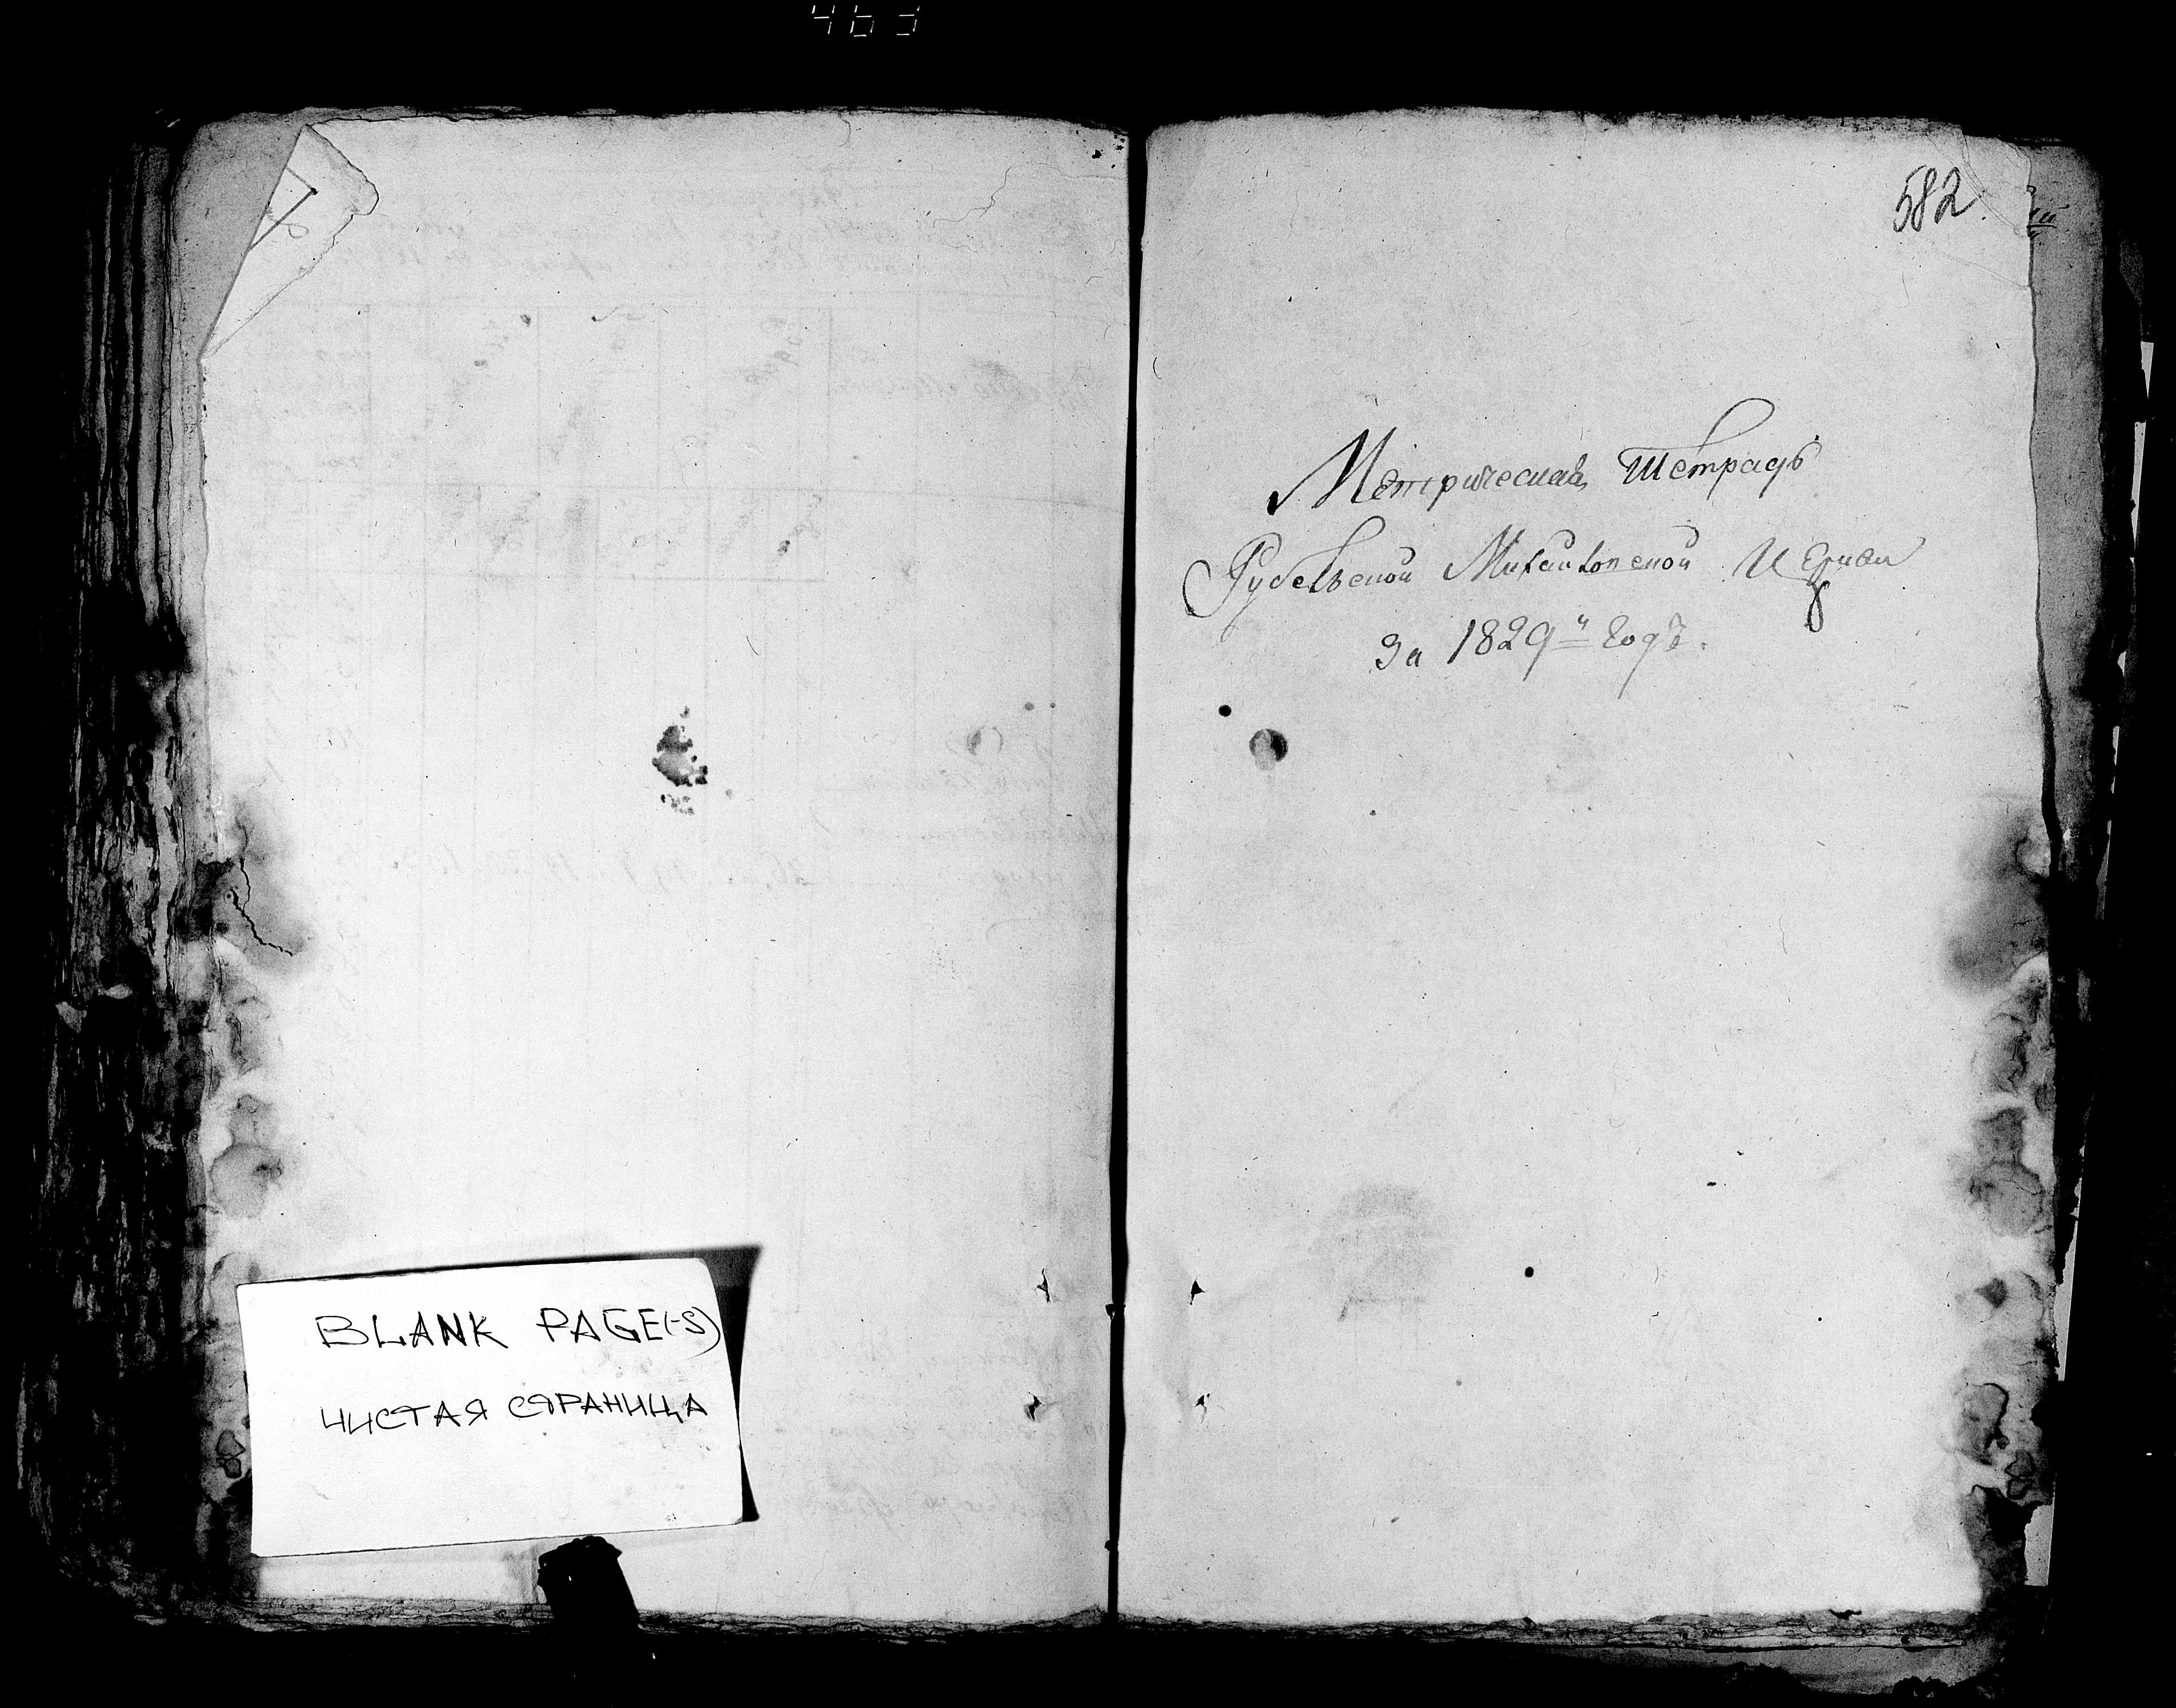 BLANK PAGE(-S)
ЧИСТАЯ СТРАНИЦА
582
Метрическая Тетрадь
Рубельской Михайловской Церкви
За 1829й годъ.